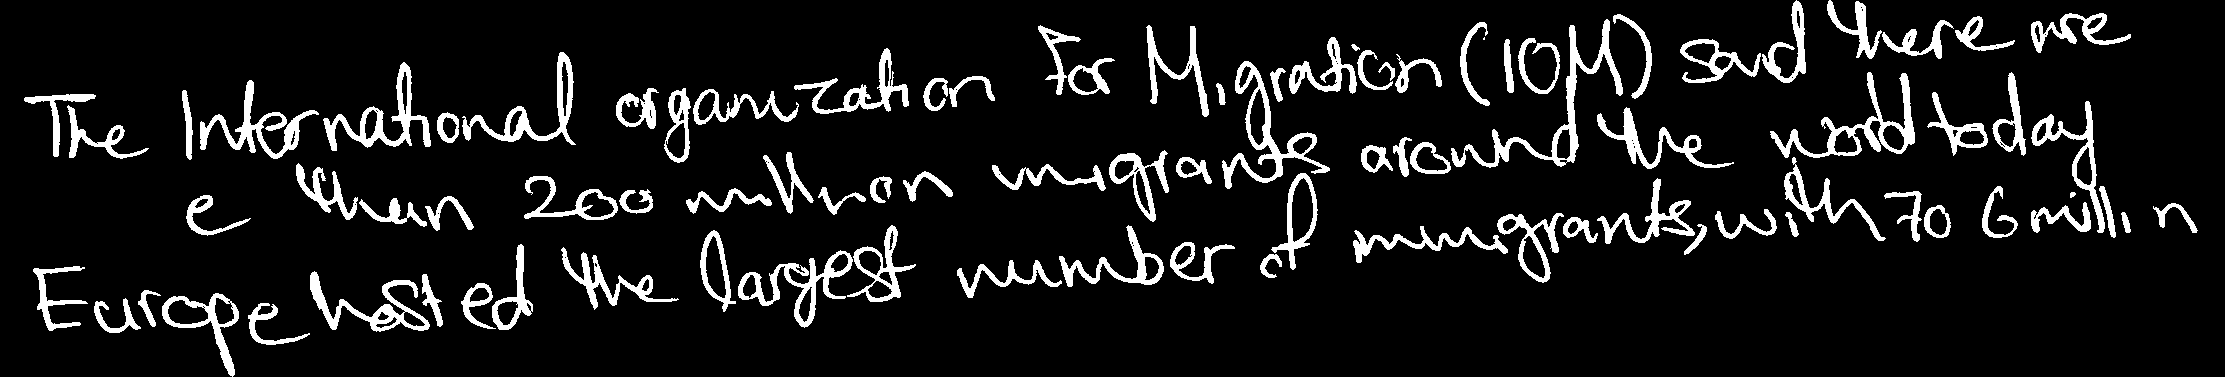 The International organization For Migration (IOM) said there are
e than 200 million migrants around the world today
Europe hosted the largest number of immigrants, with 70 6 millin